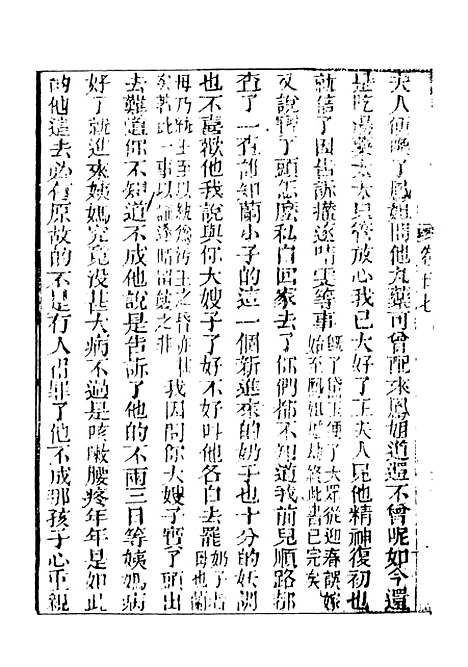 夫人便喚了鳳姐問他丸藥可曾配來鳳姐道還不曾呢如今還
是吃湯藥太太只管放心我已大好了王夫人見他精神復初也
就信了因告訴攆逐晴雯等事 從迎春誤嫁始 終此書已完矣
又說寶丫頭怎麽私自回家去了你們都不知道我前兒順路都
查了一查誰知蘭小子的這一個新進來的奶子也十分的妖調
也不喜歡他我說與你大嫂子了好不好叫他各自去罷
之昏亦非 此一事以證逐晴 之非 我因問你大嫂子寶丫頭出
去難道你不知道不成他說是告訴了他的不兩三日等姨媽病
好了就進來姨媽究竟沒甚大病不過是咳嗽腰疼年年是如此
的他這去必有原故的不是有人得罪了他不成那孩子心重親
卷廿七